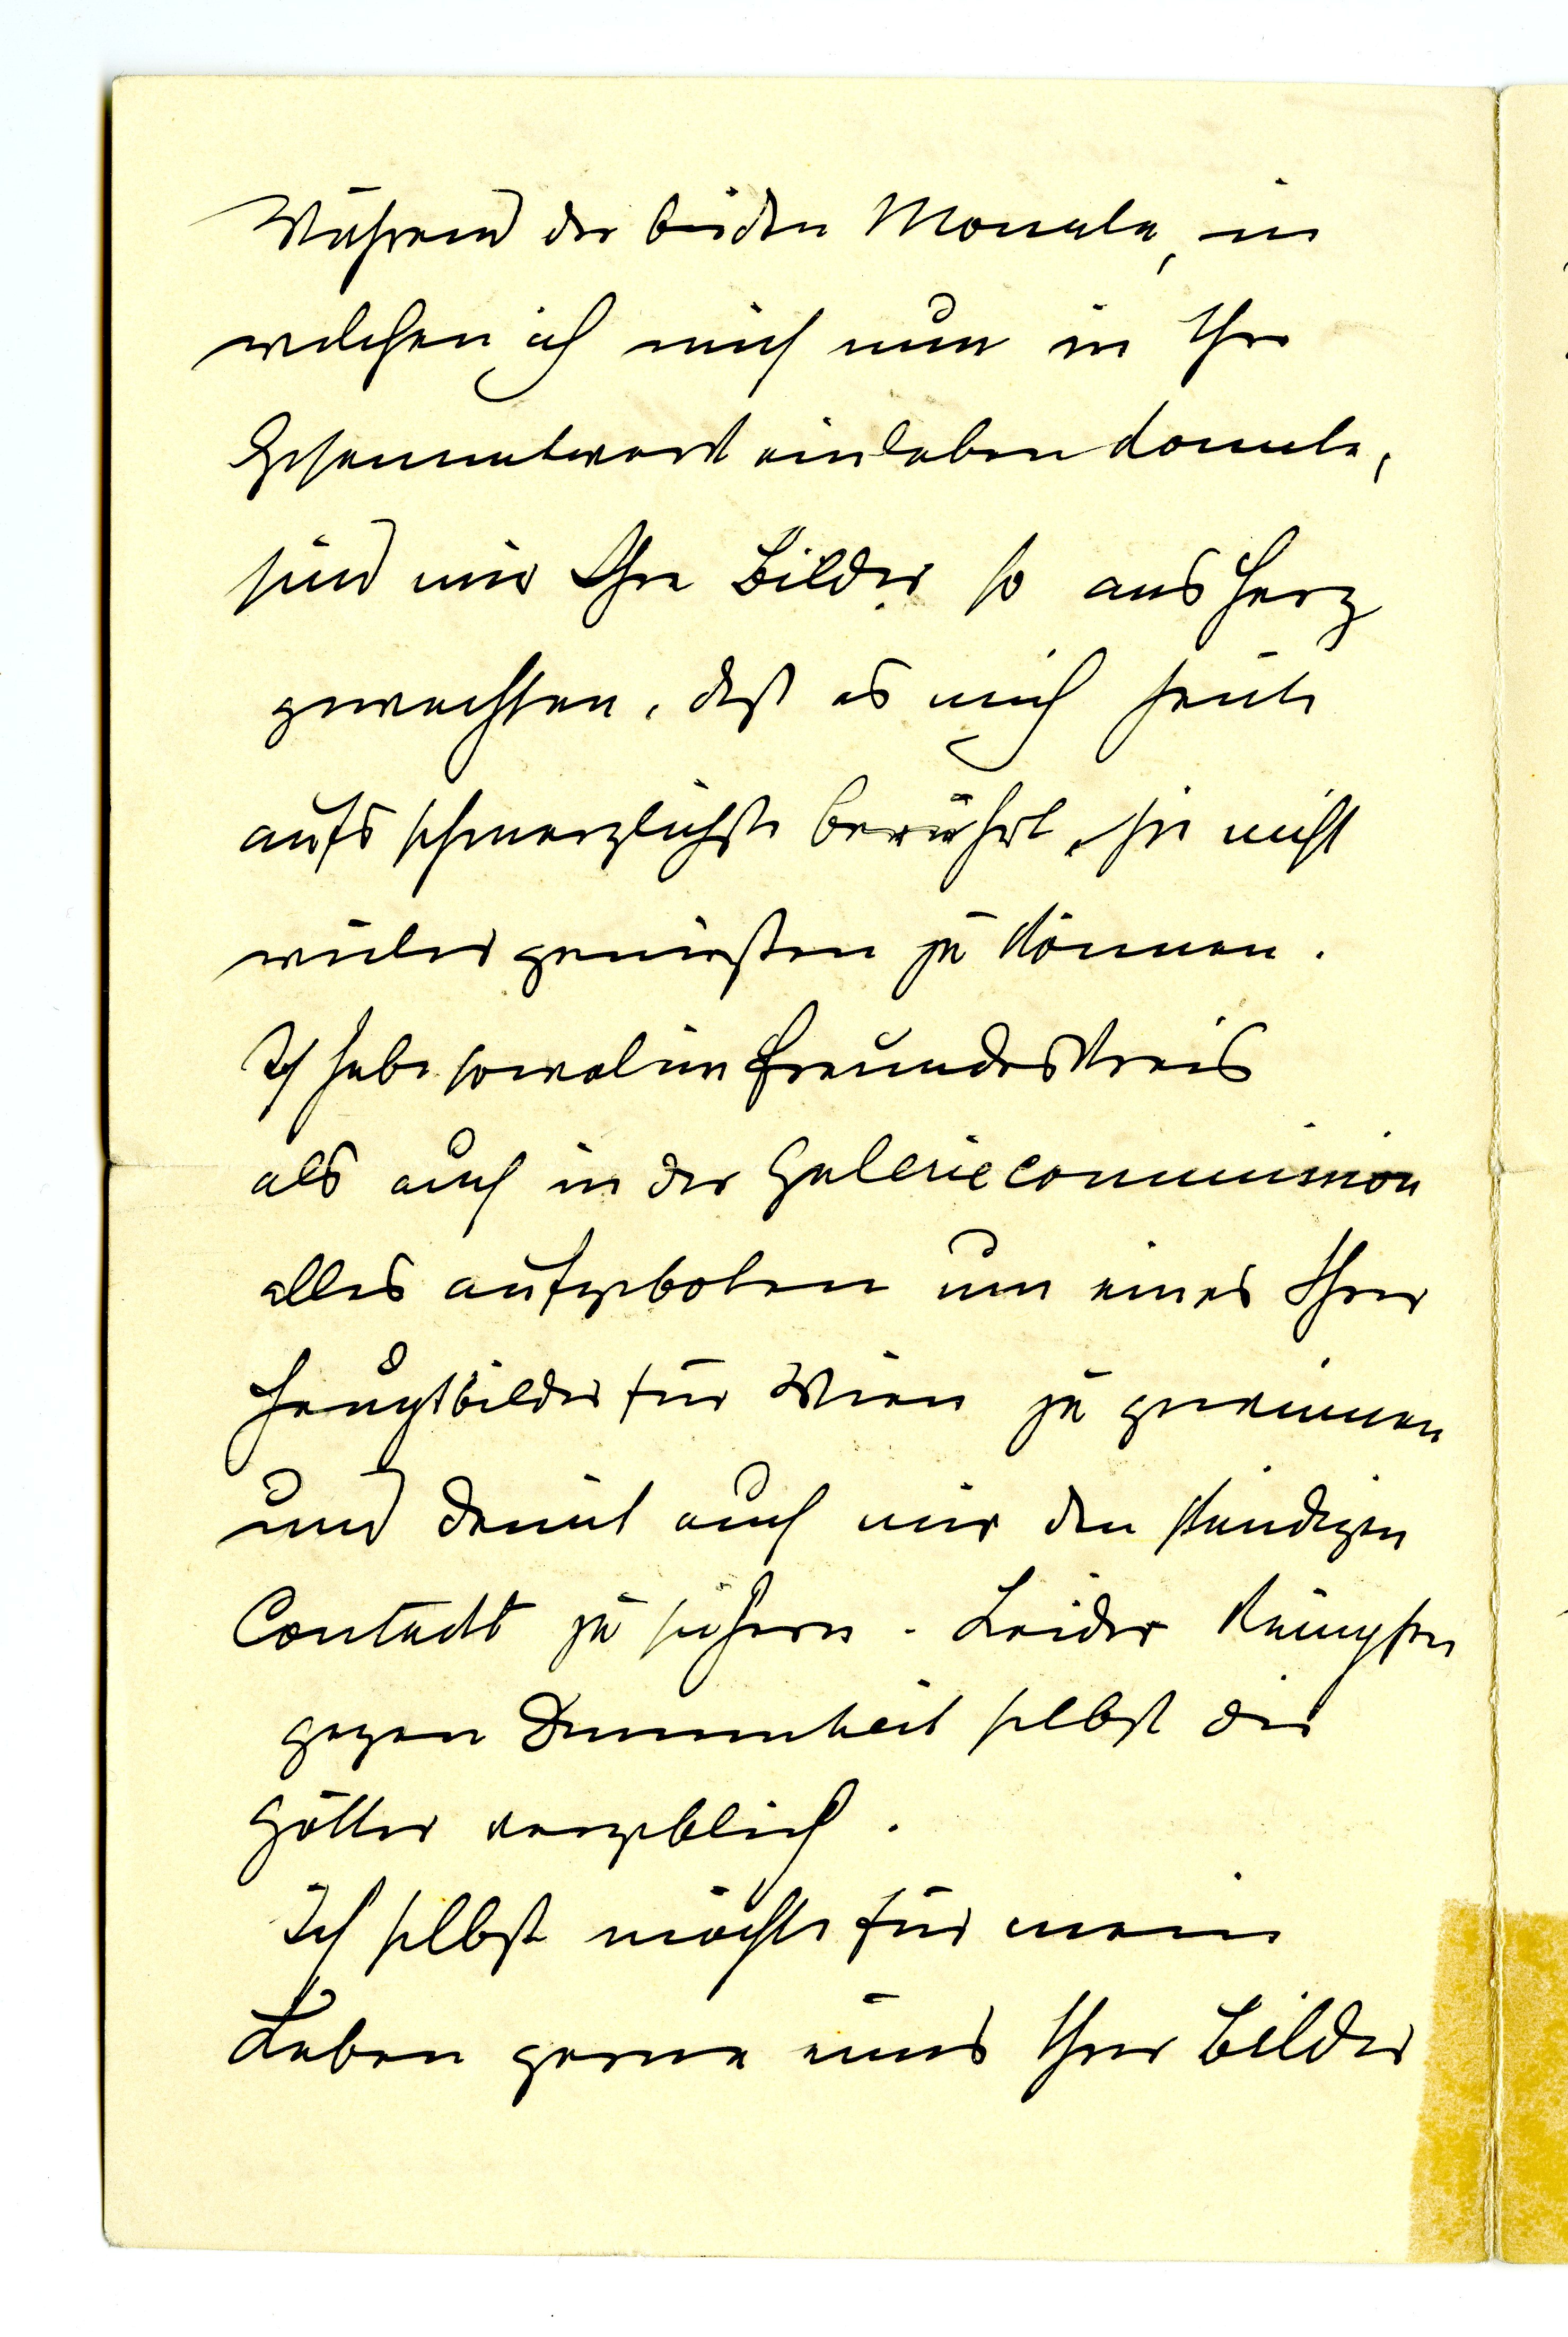 Während der beiden Monate, in
welchen ich mich nun in Ihr
Gesammtwerk einleben konnte,
sind mir Ihre Bilder so ans Herz
gewachsen, daß es mich heute
aufs schmerzlichste berührt, sie nicht
weiter genießen zu können.
Ich habe sowol im Freundeskreis
als auch in der Galeriecommission
alles aufgeboten um eines Ihrer
Hauptbilder für Wien zu gewinnen
und damit auch mir den ständigen
Contackt zu sichern. Leider kämpfen
gegen Dummheit selbst die
Götter vergeblich.
Ich selbst möchte für mein
Leben gerne eines Ihrer Bilder